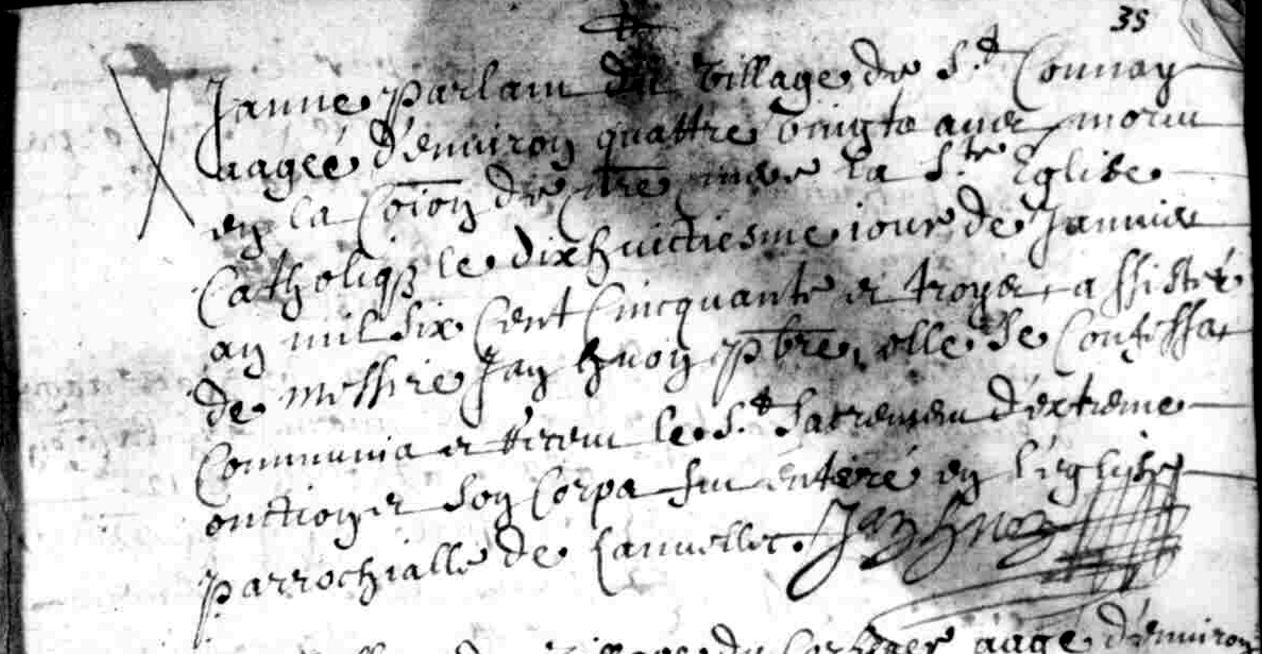 35
Janne parlant du village de St Connay
aagée d'environ quattre vingts ans morut
en la coion de nre mere la Ste Eglise
Catholique le dixhuictiesme iour de Janvier
an mil six cent cincquante et troys assistée
de messire Jan pbre, elle se confessa
communia et receut le St Sacrement d'extreme
onction et son corps fut enterré en l'eglise
parrochialle de Lanvellec. Jan
village du aagé d'environ